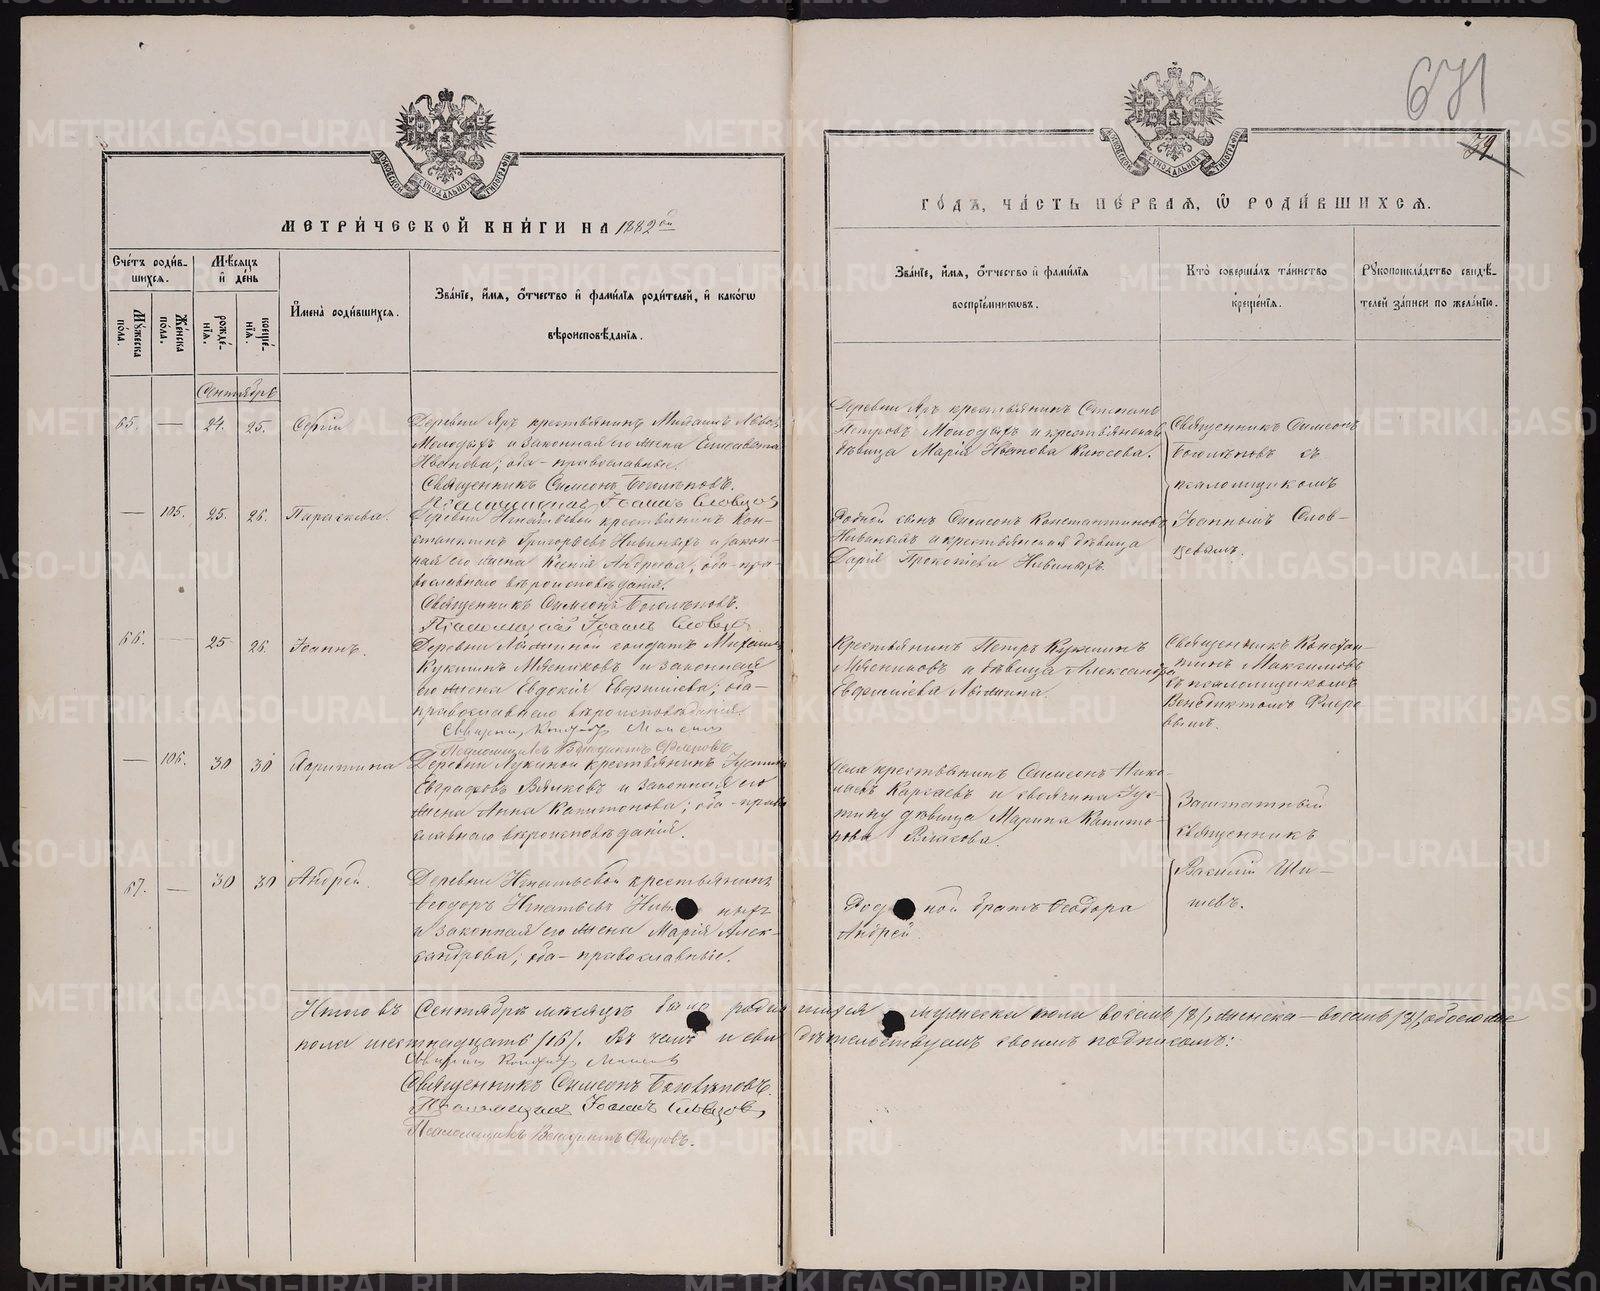 671
39
МЕТРИ́ЧЕСКОЙ КНИ́ГИ НА 1882ой
ГО́ДЪ, ЧА́СТЬ ПЕ́РВАЯ, Ѡ РОДИ́ВШИХСЯ.
Сче́тъ роди́в-
шихся.
Му́жеска пола.
Же́нска пола.
Мѣ́сяцъ и де́нь
рожде́-
нїя.
креще́-
нїя.
Имена̀ роди́вшихся.
Зва́нїе, и́мя, ѻ́тчество и фами́лїя роди́телей, и како́гѡ
вѣроисповѣ́данїя.
Зва́нїе, и́мя, ѻ́тчество и фами́лїя
воспрїе́мниковъ.
Кто̀ соверша́лъ та́инство
креще́нїя.
Рукоприкла́дство свидѣ́-
телей за́писи по жела́нїю.
Сентябрь
65. — 24. 25. Сергій
Деревни Яръ крестьянинъ Михаилъ
Молодыхъ и законная его жена Елисавета
Иванова; оба-православные.
Священникъ Симеонъ Боголѣповъ.
Псаломщикъ Іоаннъ Словцовъ
Деревни Яръ крестьянинъ Стефанъ
Петровъ Молодыхъ и крестьянская
дѣвица Марія Иванова Клюсова.
Священникъ Симеонъ
Боголѣповъ съ
псаломщикомъ
Іоанномъ Слов-
цевымъ.
— 105. 25. 26. Параскева.
Деревни Игнатьевой крестьянинъ Кон-
стантинъ Григорьевъ Нивиныхъ и закон-
ная его жена Ксенія Андреева; оба-пра-
вославнаго вѣроисповѣданія.
Священникъ Симеонъ Боголѣповъ.
Псаломщикъ Іоаннъ Словцовъ
Родной сынъ Симеонъ Константиновъ
Нивиныхъ и крестьянская дѣвица
Дарія Прокопіева Нивиныхъ.
66. — 25 26. Іоаннъ.
Деревни солдатъ Михаилъ
Кукшинъ Мясниковъ и законная
его жена Евдокія; оба-
православнаго вѣроисповѣданія.
Псаломщикъ Венедиктъ Флоровъ
Крестьянинъ Петръ Кукшинъ
Мясниковъ и дѣвица Александра
Священникъ Констан-
тинъ Максимовъ
съ псаломщикомъ
Венедиктомъ Флоро-
вымъ.
— 106. 30 30
Деревни Лукиной крестьянинъ
Евграфовъ и законная его
жена Анна Капитонова; оба-право-
славнаго вѣроисповѣданія.
крестьянинъ Симеонъ Нико-
лаевъ Каргаевъ и своячина Іус-
тину дѣвица Марина Капито-
нова Власова.
Заштатный
священникъ
Василій Ши-
шевъ.
67. — 30 30 Андрей.
Деревни Игнатьевой крестьянинъ
Ѳеодоръ Игнатьевъ Нивиныхъ
и законная его жена Марія Алек-
сандрова; оба-православные.
Родной братъ Ѳеодора
Андрей.
Итого въ Сентябрѣ мѣсяцѣ было родившихся мужеска пола восемь /8/, женска-восемь /8/, обоего же
пола шестнадцать /16/. Въ чемъ и свидѣтельствуемъ своимъ подписомъ:
Священникъ Симеонъ Боголѣповъ.
Псаломщикъ Іоаннъ Словцовъ
Псаломщикъ Венедиктъ Флоровъ.
METRIKI.GASO-URAL.RU